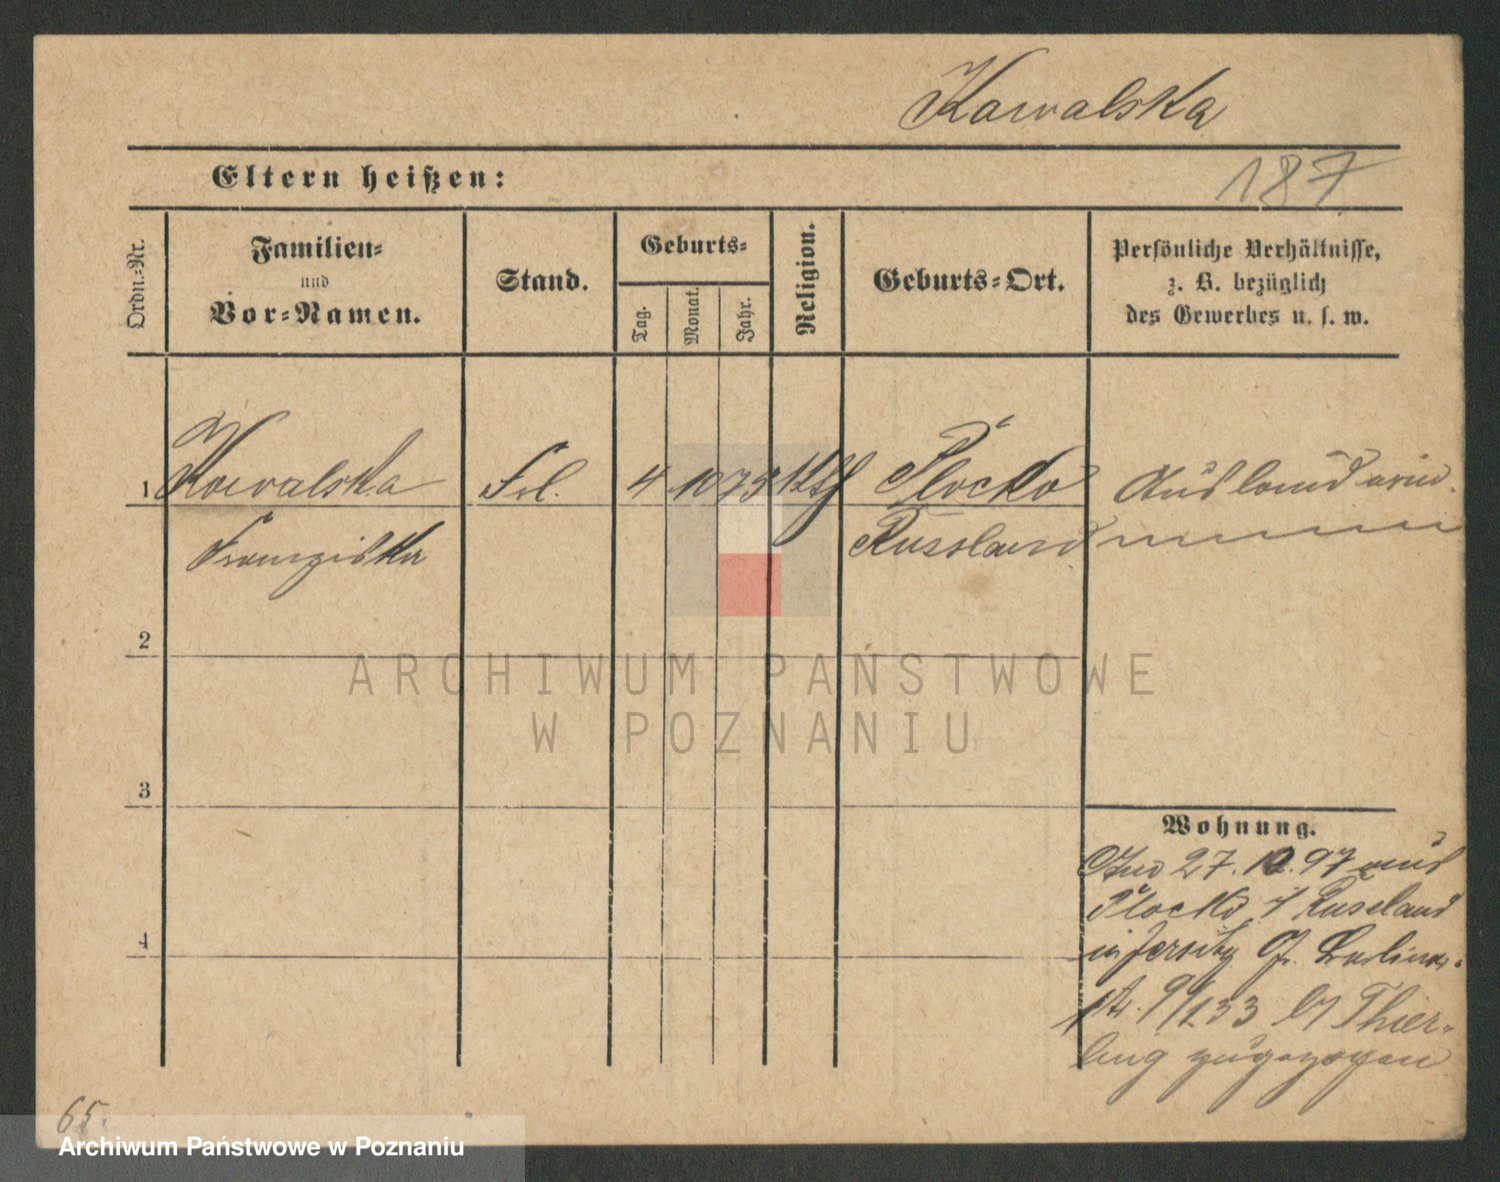 Kowalska
Eltern heißen:
187
Ordn.-Nr.
Familien-
und
Vor-Namen.
Stand.
Geburts-
Tag.
Monat.
Jahr.
Religion.
Geburts-Ort.
Persönliche Verhältnisse,
z. B. bezüglich
des Gewerbes u. s. w.
1 Kowalska Frl. 4 10 75 Kth Plocko Ausländerin
Franziska Russland
2
3
4
Wohnung.
27. 10. 97 aus
Plocko i/ Russland
in Jersitz Gr. Berliner-
str. 9/133 b/ Thier-
ling zugezogen
65.
ARCHIWUM PAŃSTWOWE
W POZNANIU
Archiwum Państwowe w Poznaniu